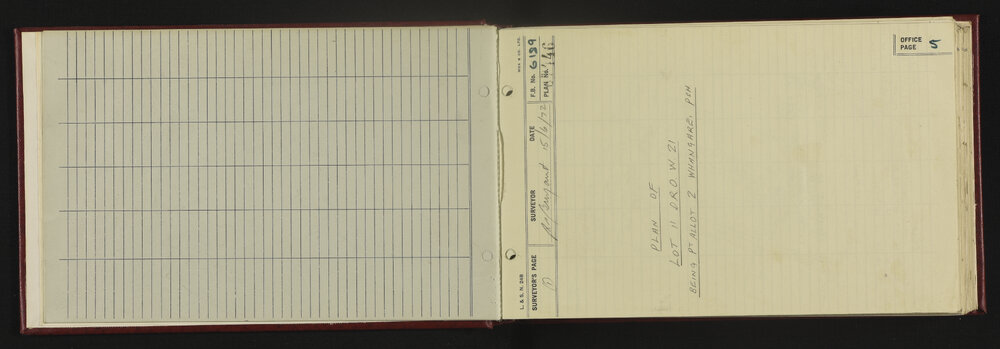 L. & S. N. 248
SURVEYOR'S PAGE
SURVEYOR
DATE 15/6/72
F.B. No. 6139
PLAN No.
OFFICE PAGE 5
PLAN OF
LOT 11 D.R.O W 21
BEING PT ALLOT 2 WHANGAREI PSH